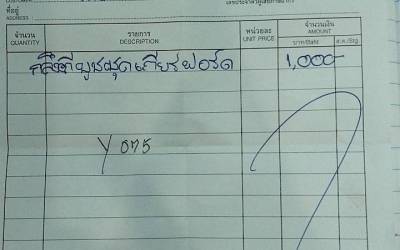 ที่อยู่
ADDRESS
จำนวน QUANTITY รายการ DESCRIPTION หน่วยละ UNIT PRICE จำนวนเงิน AMOUNT
บาท/Baht ส.ต./Stg.
กลึงบูชชุดเกียร์ฟอร์ด 1,000-
Y 075